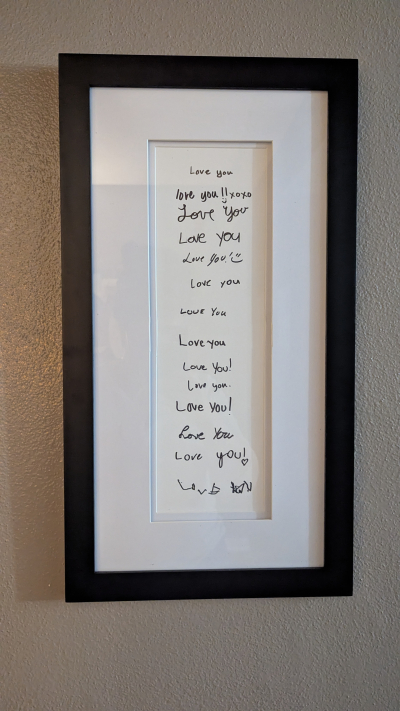 Love you
love you!! xoxo
Love You
Love you
Love you! :)
Love you
Love You
Love you
Love You!
Love you.
Love You!
Love You
Love you! ♡
Love